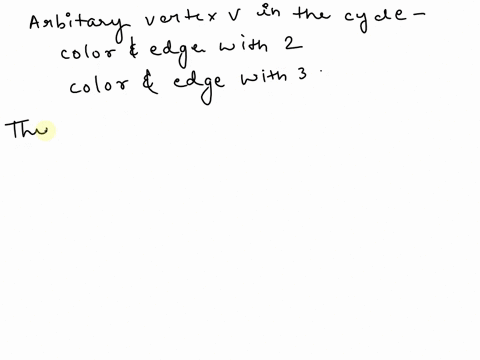 Arbitary vertex v in the cycle -
color & edge with 2
color & edge with 3.
Thu